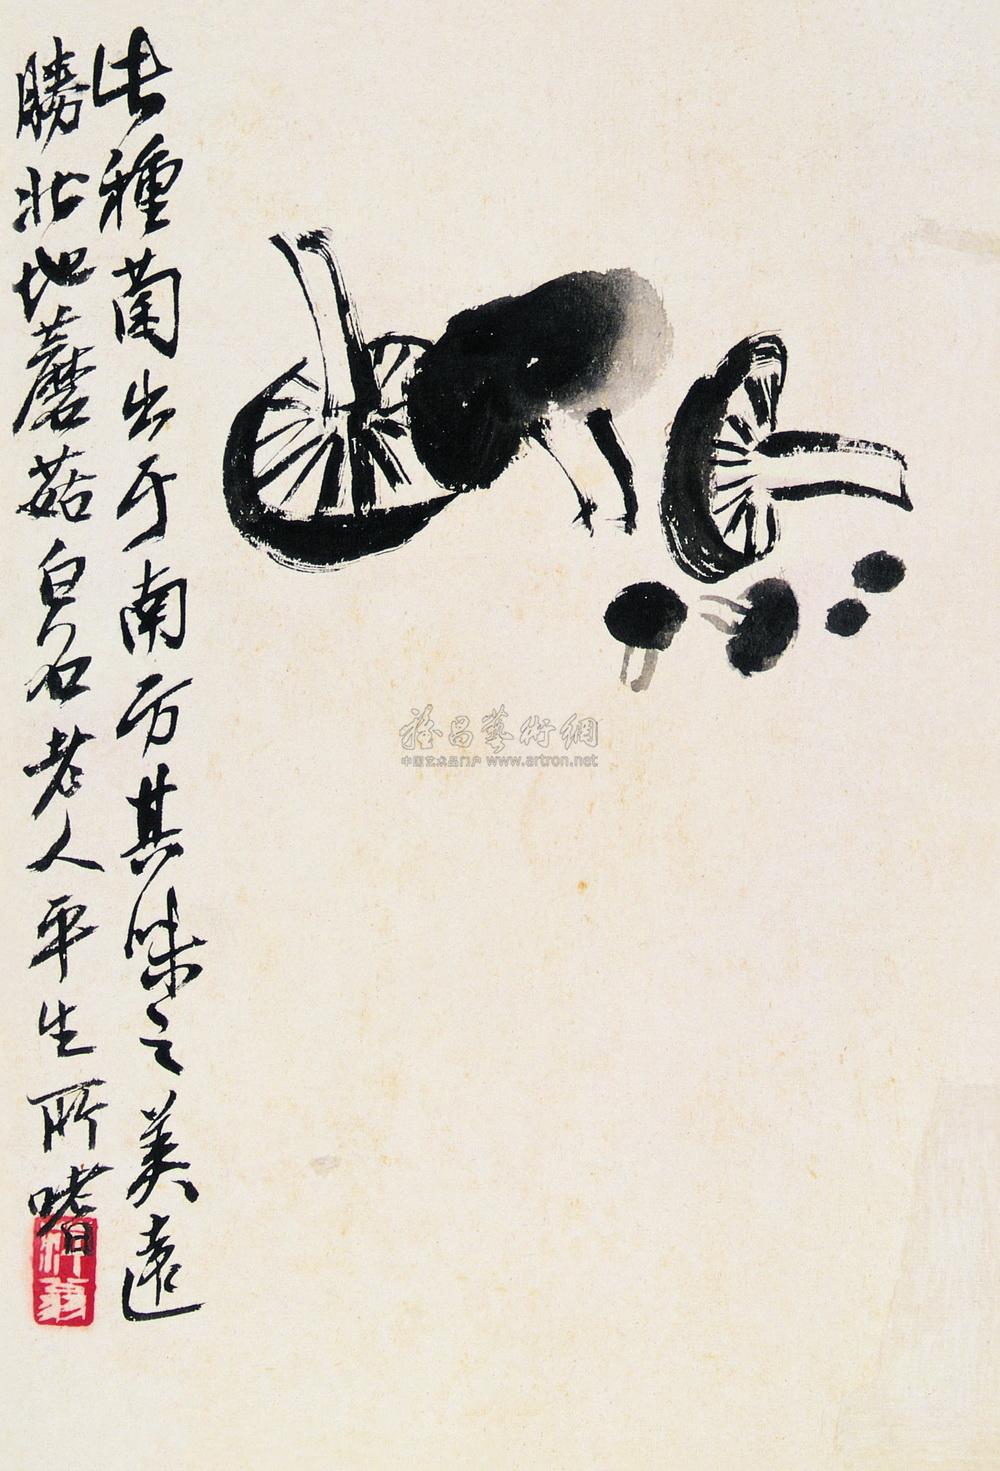 此種菌出于南方其味之美遠
勝北地蘑菇白石老人平生所嗜
雅昌藝術網
中国艺术品门户 www.artron.net